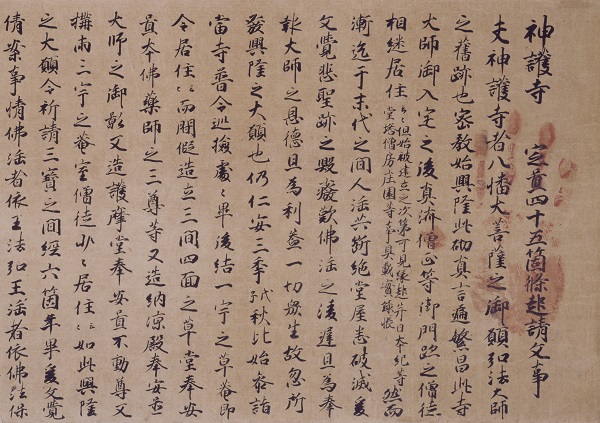 神護寺 定置四十五箇條起請文事
夫神護寺者八幡大菩薩之御願弘法大師
之舊跡也密教始興隆此砌真言遍繁昌此寺
大師御入定之後真済僧正等御門跡之僧徒
相継居住々々但始被建立之次第可見縁起并日本紀等
堂塔僧房庄園等事具載實録帳 然而
漸迄于末代之間人法共斷絶堂屋悉破滅爰
文覺悲聖跡之毀癈歎佛法之凌遅且為奉
報大師之恩德且為利益一切衆生故忽所
發興隆之大願也仍仁安三季戊子秋比始参詣
當寺普令巡撿處々畢後結一宇之草菴即
令居住々々而間假造立三間四面之草堂奉安
置本佛薬師之三尊等又造納凉殿奉安置
大師之御影又造護摩堂奉安置不動尊又
構両三宇之菴室僧徒少々居住々々如此興隆
之大願令祈請三寳之間經六箇年畢爰文覺
倩案事情佛法者依王法弘王法者依佛法保